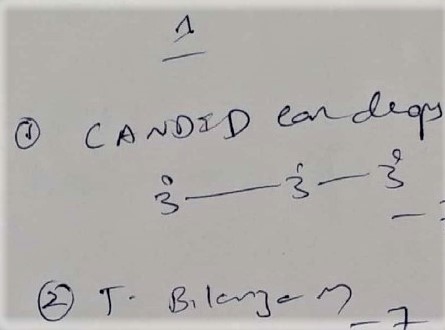 1
① CANDID ear drops
3 — 3 — 3
② T. Bilanze M
- 7